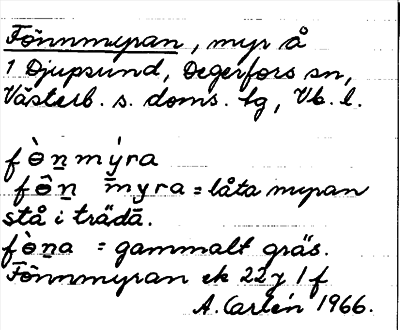 Fönnmyran, myr å
1 Djupsund, Degerfors sn,
Västerb. s. doms. tg, Vb. l.
fò̱nmýra
fô̱n m̄yra = låta myran
stå i trädā.
fò̱na = gammalt gräs.
Fönnmyran ek 22 7 1 f
A. Carlén 1966.